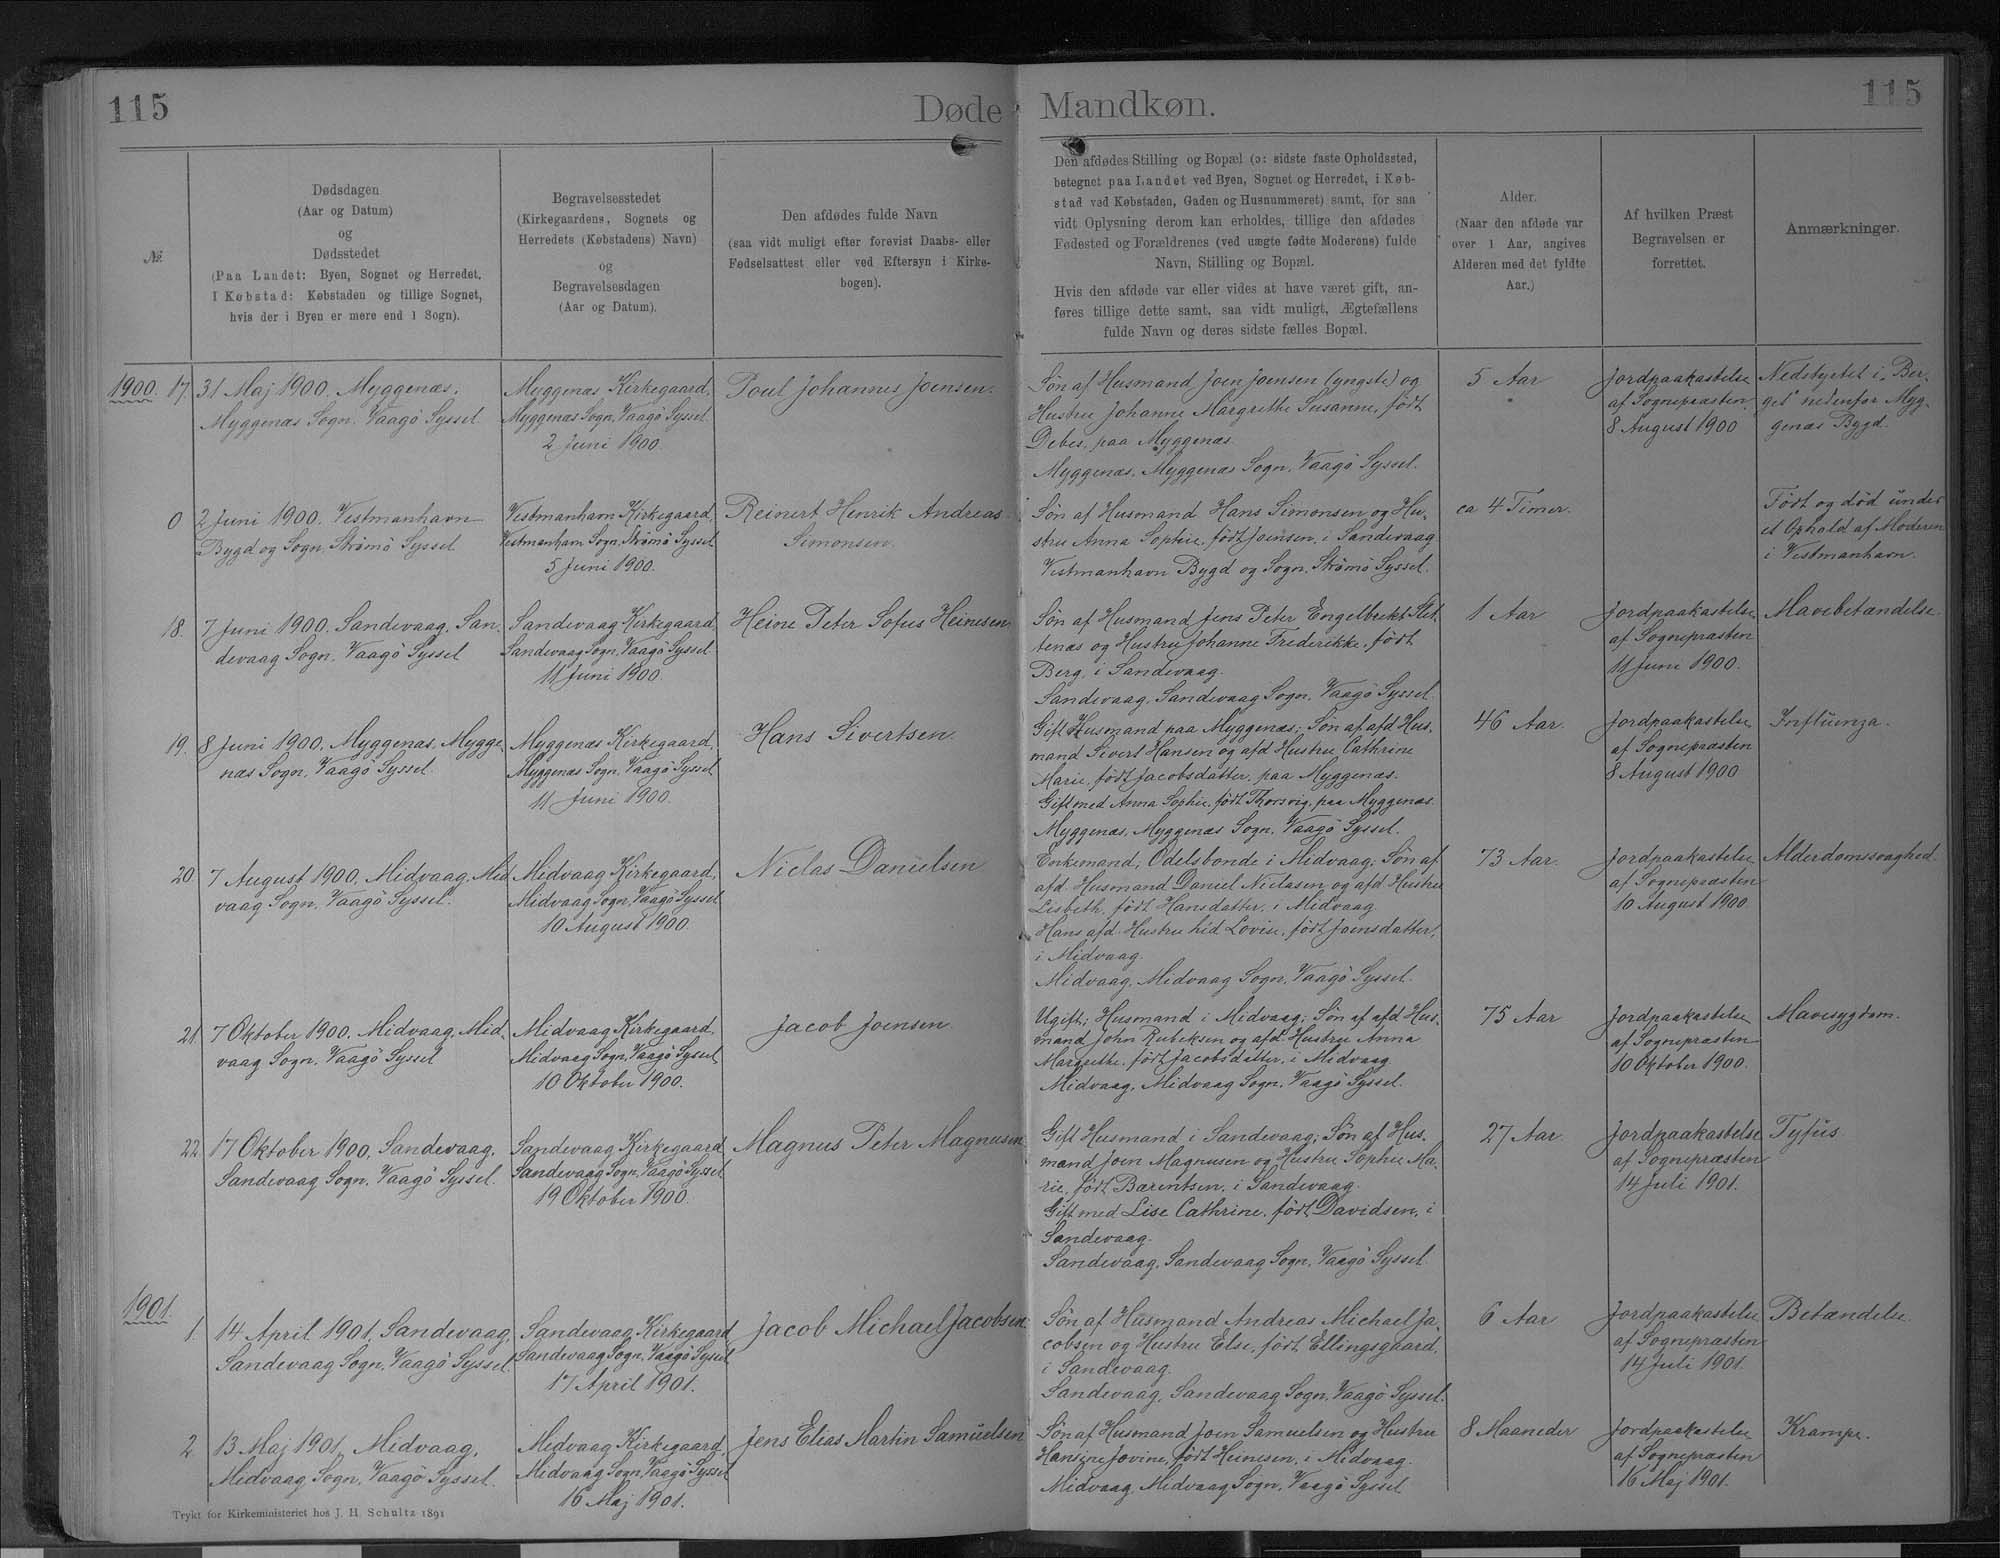 115
Døde
Mandkøn.
115
№.
Dødsdagen
(Aar og Datum)
og
Dødsstedet
(Paa Landet: Byen, Sognet og Herredet,
I Købstad: Købstaden og tillige Sognet,
hvis der i Byen er mere end 1 Sogn).
Begravelsesstedet
(Kirkegaardens, Sognets og
Herredets (Købstadens) Navn)
og
Begravelsesdagen
(Aar og Datum).
Den afdødes fulde Navn
(saa vidt muligt efter forevist Daabs- eller
Fødselsattest eller ved Eftersyn i Kirke-
bogen).
Den afdødes Stilling og Bopæl (ɔ: sidste faste Opholdssted,
betegnet paa Landet ved Byen, Sognet og Herredet, i Køb-
stad ved Købstaden, Gaden og Husnummeret) samt, for saa
vidt Oplysning derom kan erholdes, tillige den afdødes
Fødested og Forældrenes (ved uægte fødte Moderens) fulde
Navn, Stilling og Bopæl.
Hvis den afdøde var eller vides at have været gift, an-
føres tillige dette samt, saa vidt muligt, Ægtefællens
fulde Navn og deres sidste fælles Bopæl.
Alder.
(Naar den afdøde var
over 1 Aar, angives
Alderen med det fyldte
Aar.)
Af hvilken Præst
Begravelsen er
forrettet.
Anmærkninger.
1900. 17.
31 Maj 1900. Myggenæs,
Myggenæs Sogn. Vaagö Syssel.
Myggenæs Kirkegaard,
Myggenæs Sogn, Vaagö Syssel
2 Juni 1900.
Poul Johannes Joensen.
Søn af Husmand Joen Joensen (yngste) og
Hustru Johanne Margrethe Susanne, født
Debes, paa Myggenæs.
Myggenæs, Myggenæs Sogn, Vaagö Syssel.
5 Aar
Jordpaakastelse
af Sognepræsten
8 August 1900
Nedstyrtet i „Ber-
get" nedenfor Myg-
genæs Bygd.
0
2 Juni 1900. Vestmanhavn
Bygd og Sogn, Strömö Syssel
Vestmanhavn Kirkegaard,
Vestmanhavn Sogn, Strømö Syssel
5 Juni 1900.
Reinert Henrik Andreas
Simonsen.
Søn af Husmand Hans Simonsen og Hu-
stru Anna Sophie, født Joensen, i Sandevaag
Vestmanhavn Bygd og Sogn, Strömö Syssel.
ca 4 Timer.
Født og död under
et Ophold af Moderen
i Vestmanhavn.
18.
7 Juni 1900. Sandevaag, San-
devaag Sogn, Vaagö Syssel
Sandevaag Kirkegaard
Sandevaag Sogn, Vaagö Syssel
11 Juni 1900.
Heine Peter Sofus Heinesen
Søn af Husmand Jens Peter Engelbrekt Slet-
tenæs og Hustru Johanne Frederikke, født
Berg, i Sandevaag.
Sandevaag, Sandevaag Sogn, Vaagö Syssel
1 Aar
Jordpaakastelse
af Sognepræsten
11 Juni 1900.
Mavebetændelse.
19.
8 Juni 1900, Myggenæs, Mygge-
næs Sogn, Vaagö Syssel.
Myggenæs Kirkegaard,
Myggenæs Sogn, Vaagö Syssel
11 Juni 1900.
Hans Sivertsen
Gift Husmand paa Myggenæs; Søn af afd Hus-
mand Sivert Hansen og afd Hustru Cathrine
Marie, født Jacobsdatter, paa Myggenæs.
Gift med Anna Sophie, født Thorsvig, paa Myggenæs.
Myggenæs, Myggenæs Sogn, Vaagö Syssel.
46 Aar.
Jordpaakastelse
af Sognepræsten
8 August 1900
Influenza.
20
7 August 1900, Midvaag, Mid-
vaag Sogn, Vaagö Syssel.
Midvaag Kirkegaard,
Midvaag Sogn, Vaagö Syssel
10 August 1900.
Niclas Danielsen
Enkemand, Odelsbonde i Midvaag; Søn af
afd. Husmand Daniel Niclasen og afd Hustru
Lisbeth, født Hansdatter, i Midvaag.
Hans afd. Hustru hed Lovise, født Joensdatter,
i Midvaag.
Midvaag, Midvaag Sogn, Vaagö Syssel.
73 Aar.
Jordpaakastelse
af Sognepræsten
10 August 1900
Alderdomssvaghed.
21.
7 Oktober 1900. Midvaag, Mid-
vaag Sogn, Vaagö Syssel
Midvaag Kirkegaard,
Midvaag Sogn, Vaagö Syssel
10 Oktober 1900.
Jacob Joensen
Ugift; Husmand i Midvaag; Søn af afd Hus-
mand John Rubeksen og afd. Hustru Anna
Margrethe, født Jacobsdatter, i Midvaag
Midvaag, Midvaag Sogn, Vaagö Syssel.
75 Aar
Jordpaakastelse
af Sognepræsten
10 Oktober 1900.
Mavesygdom.
22
17 Oktober 1900. Sandevaag,
Sandevaag Sogn, Vaagö Syssel.
Sandevaag Kirkegaard
Sandevaag Sogn, Vaagö Syssel
19 Oktober 1900.
Magnus Peter Magnusen
Gift Husmand i Sandevaag; Søn af Hus-
mand Joen Magnusen og Hustru Sophie Ma-
rie, født Barentsen, i Sandevaag.
Gift med Lise Cathrine, født Davidsen, i
Sandevaag.
Sandevaag, Sandevaag Sogn, Vaagö Syssel
27 Aar
Jordpaakastelse
af Sognepræsten
14 Juli 1901.
Tyfus
1901.
1.
14 April 1901, Sandevaag,
Sandevaag Sogn, Vaagö Syssel
Sandevaag Kirkegaard
Sandevaag Sogn, Vaagö Syssel
17 April 1901.
Jacob Michael Jacobsen
Søn af Husmand Andreas Michael Ja-
cobsen og Hustru Else, født Ellingsgaard,
i Sandevaag.
Sandevaag, Sandevaag Sogn, Vaagö Syssel.
6 Aar
Jordpaakastelse
af Sognepræsten
14 Juli 1901.
Betændelse.
2
13 Maj 1901, Midvaag,
Midvaag Sogn, Vaagö Syssel.
Midvaag Kirkegaard,
Midvaag Sogn, Vaagö Syssel
16 Maj 1901.
Jens Elias Martin Samuelsen
Søn af Husmand Joen Samuelsen og Hustru
Hansine Jovine, født Heinesen, i Midvaag.
Midvaag, Midvaag Sogn, Vaagö Syssel
8 Maaneder
Jordpaakastelse
af Sognepræsten
16 Maj 1901.
Krampe.
Trykt for Kirkeministeriet hos J. H. Schultz 1891